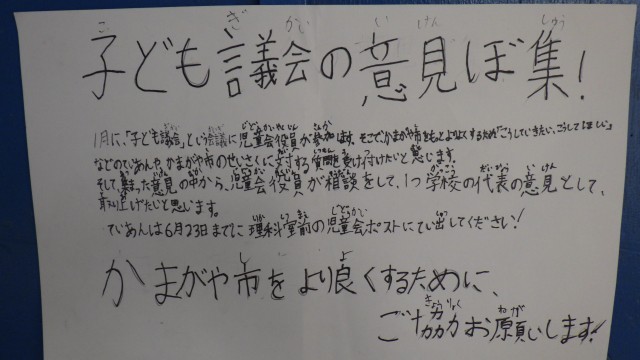 子ども議会の意見ぼ集!
1月に、「子ども議会」という会議に児童会役員が参加します。そこで、かまがや市をもっとよりよくするため「こうしていきたい、こうしてほしい」
などのていあんや、かまがや市のせいさくに対する質問を受け付けたいと思います。
そして、集まった意見の中から、児童会役員が相談をして、1つ学校の代表の意見として、
取り上げたいと思います。
ていあんは6月23日までに理科室前の児童会ポストにてい出してください!
かまがや市をより良くするために、
ご協力お願いします!